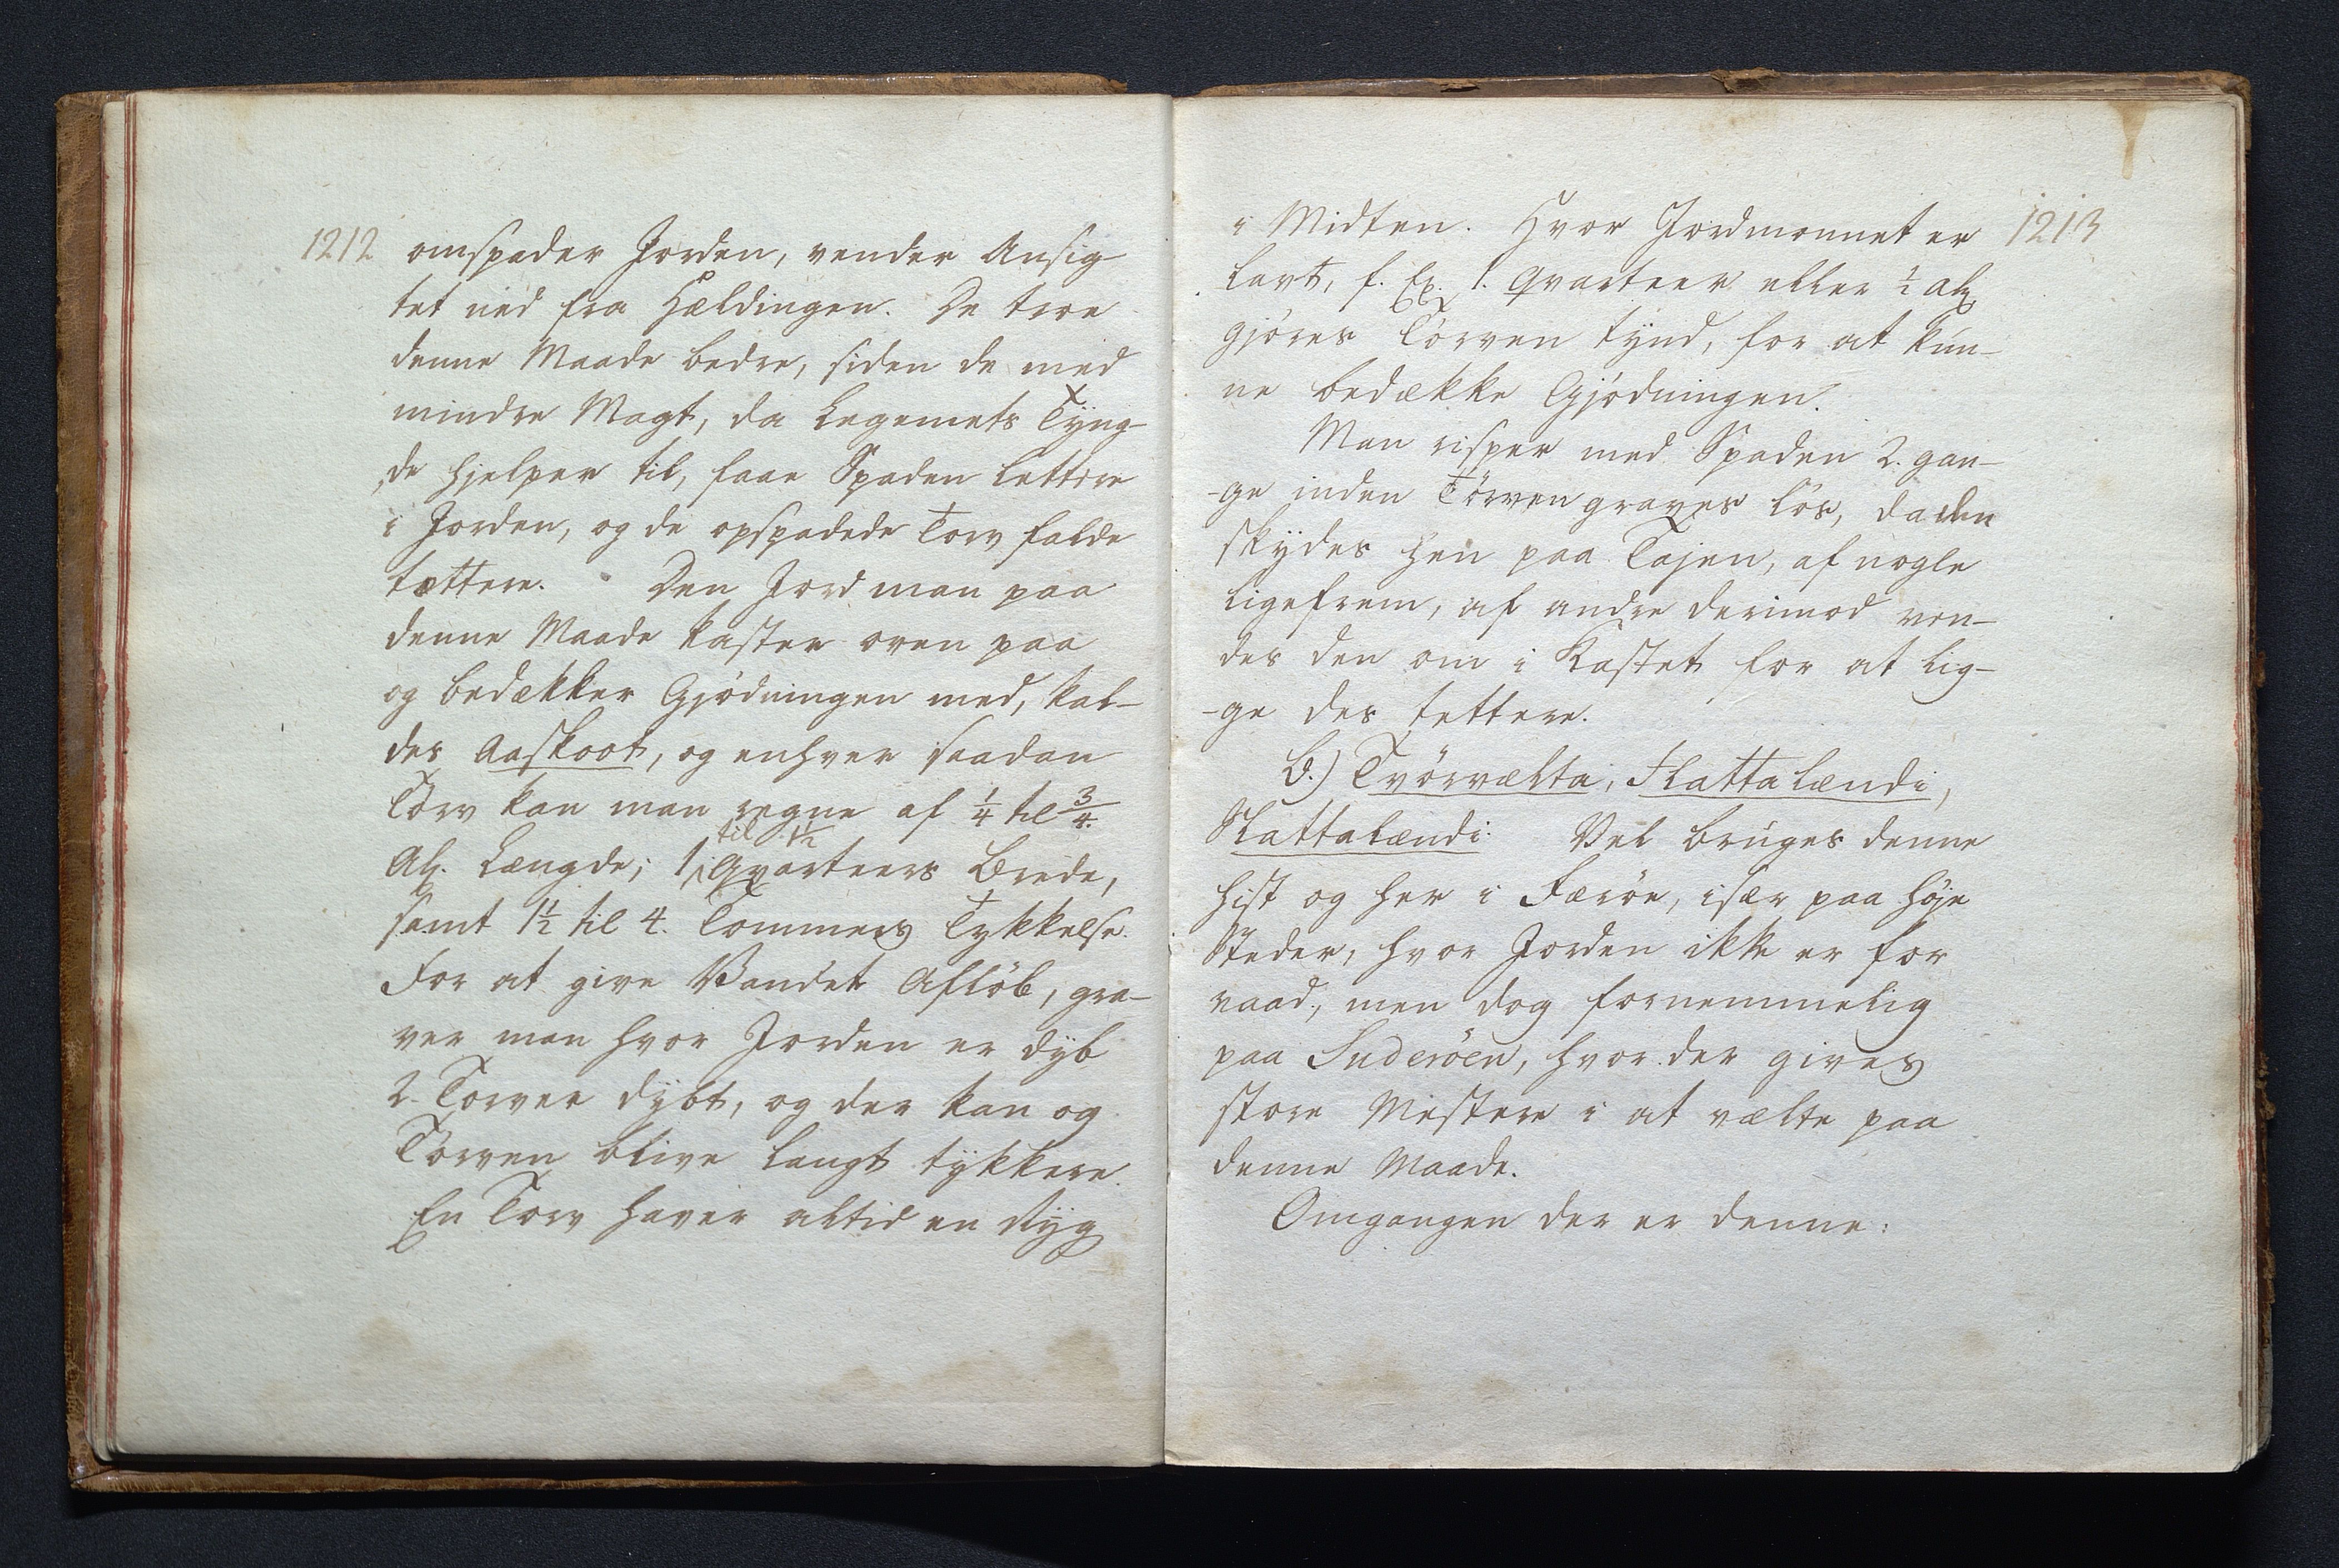 1212
omspader Jorden, vender Ansig
tet ned fra Hældingen. De troe
denne Maade bedre, siden de med
mindre Magt, da Legemets Tÿng-
de hjelper til, faae Spaden lettere
i Jorden, og de opspadede Torv falde
tættere. Den Jord man paa
denne Maade kaster oven paa
og bedækker Gjödningen med, kal-
des Aaskoot, og enhver saadan
Törv kan man regne af ¼ til ¾
Al. Længde; 1 til 1½ Qvarteers Brede,
samt 1½ til 4. Tommers Tykkelse.
For at give Vandet Aflöb, gra-
ver man hvor Jorden er dÿb
2. Torver dÿbt, og der kan og
Törven blive langt tÿkkere.
En Torv haver altid en Rÿg
1213
i Midten. Hvor Jordmonnet er
lavt, f. Ex. 1. Qvarteer eller ½ al.
gjöres Törven tÿnd, for at kun-
ne bedække Gjödningen.
Man risper med Spaden 2. gan-
-ge inden Törven graves lös, da den
skÿdes hen paa Tajen, af nogle
ligefrem, af andre derimod ven-
des den om i Kastet for at lig-
-ge des tettere.
B.) Tvörvælta, Flattalændi,
Slattalændi. Vel bruges denne
hist og her i Færöe, især paa höje
Steder, hvor Jorden ikke er for
vaad, men dog fornemmelig
paa Suderöen, hvor der gives
store Mestere i at vælte paa
denne Maade.
Omgangen der er denne: